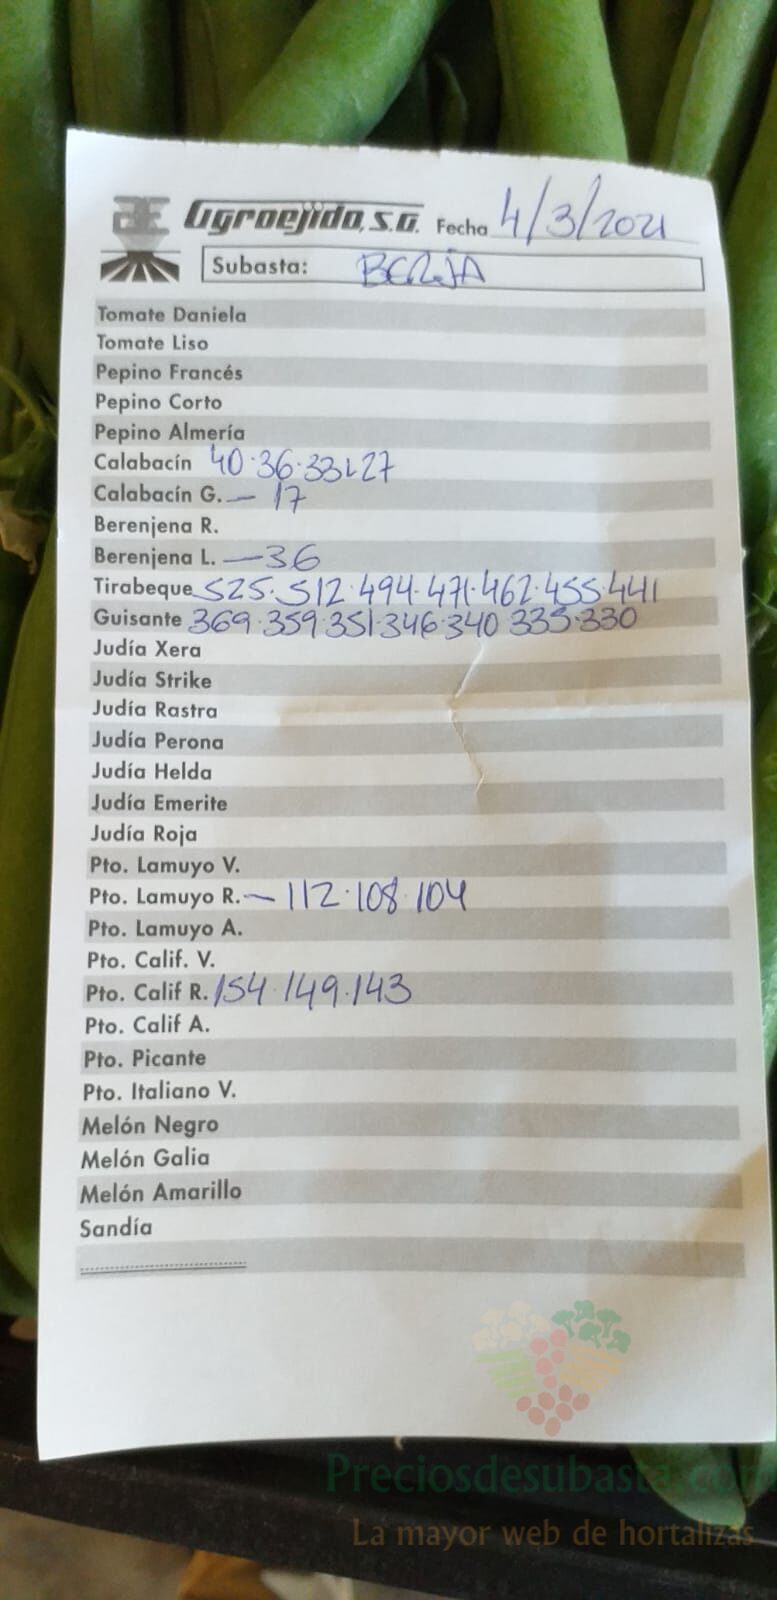 Agroejido, S.A. Fecha 4/3/2021
Subasta: BERJA
Tomate Daniela
Tomate Liso
Pepino Francés
Pepino Corto
Pepino Almería
Calabacín 40·36·33·27
Calabacín G. — 17
Berenjena R.
Berenjena L. — 36
Tirabeque 525·512·494·471·462·455·441
Guisante 369·359·351·346·340 335·330
Judía Xera
Judía Strike
Judía Rastra
Judía Perona
Judía Helda
Judía Emerite
Judía Roja
Pto. Lamuyo V.
Pto. Lamuyo R. — 112·108·104
Pto. Lamuyo A.
Pto. Calif. V.
Pto. Calif R. 154·149·143
Pto. Calif A.
Pto. Picante
Pto. Italiano V.
Melón Negro
Melón Galia
Melón Amarillo
Sandía
Preciosdesubasta.com
La mayor web de hortalizas